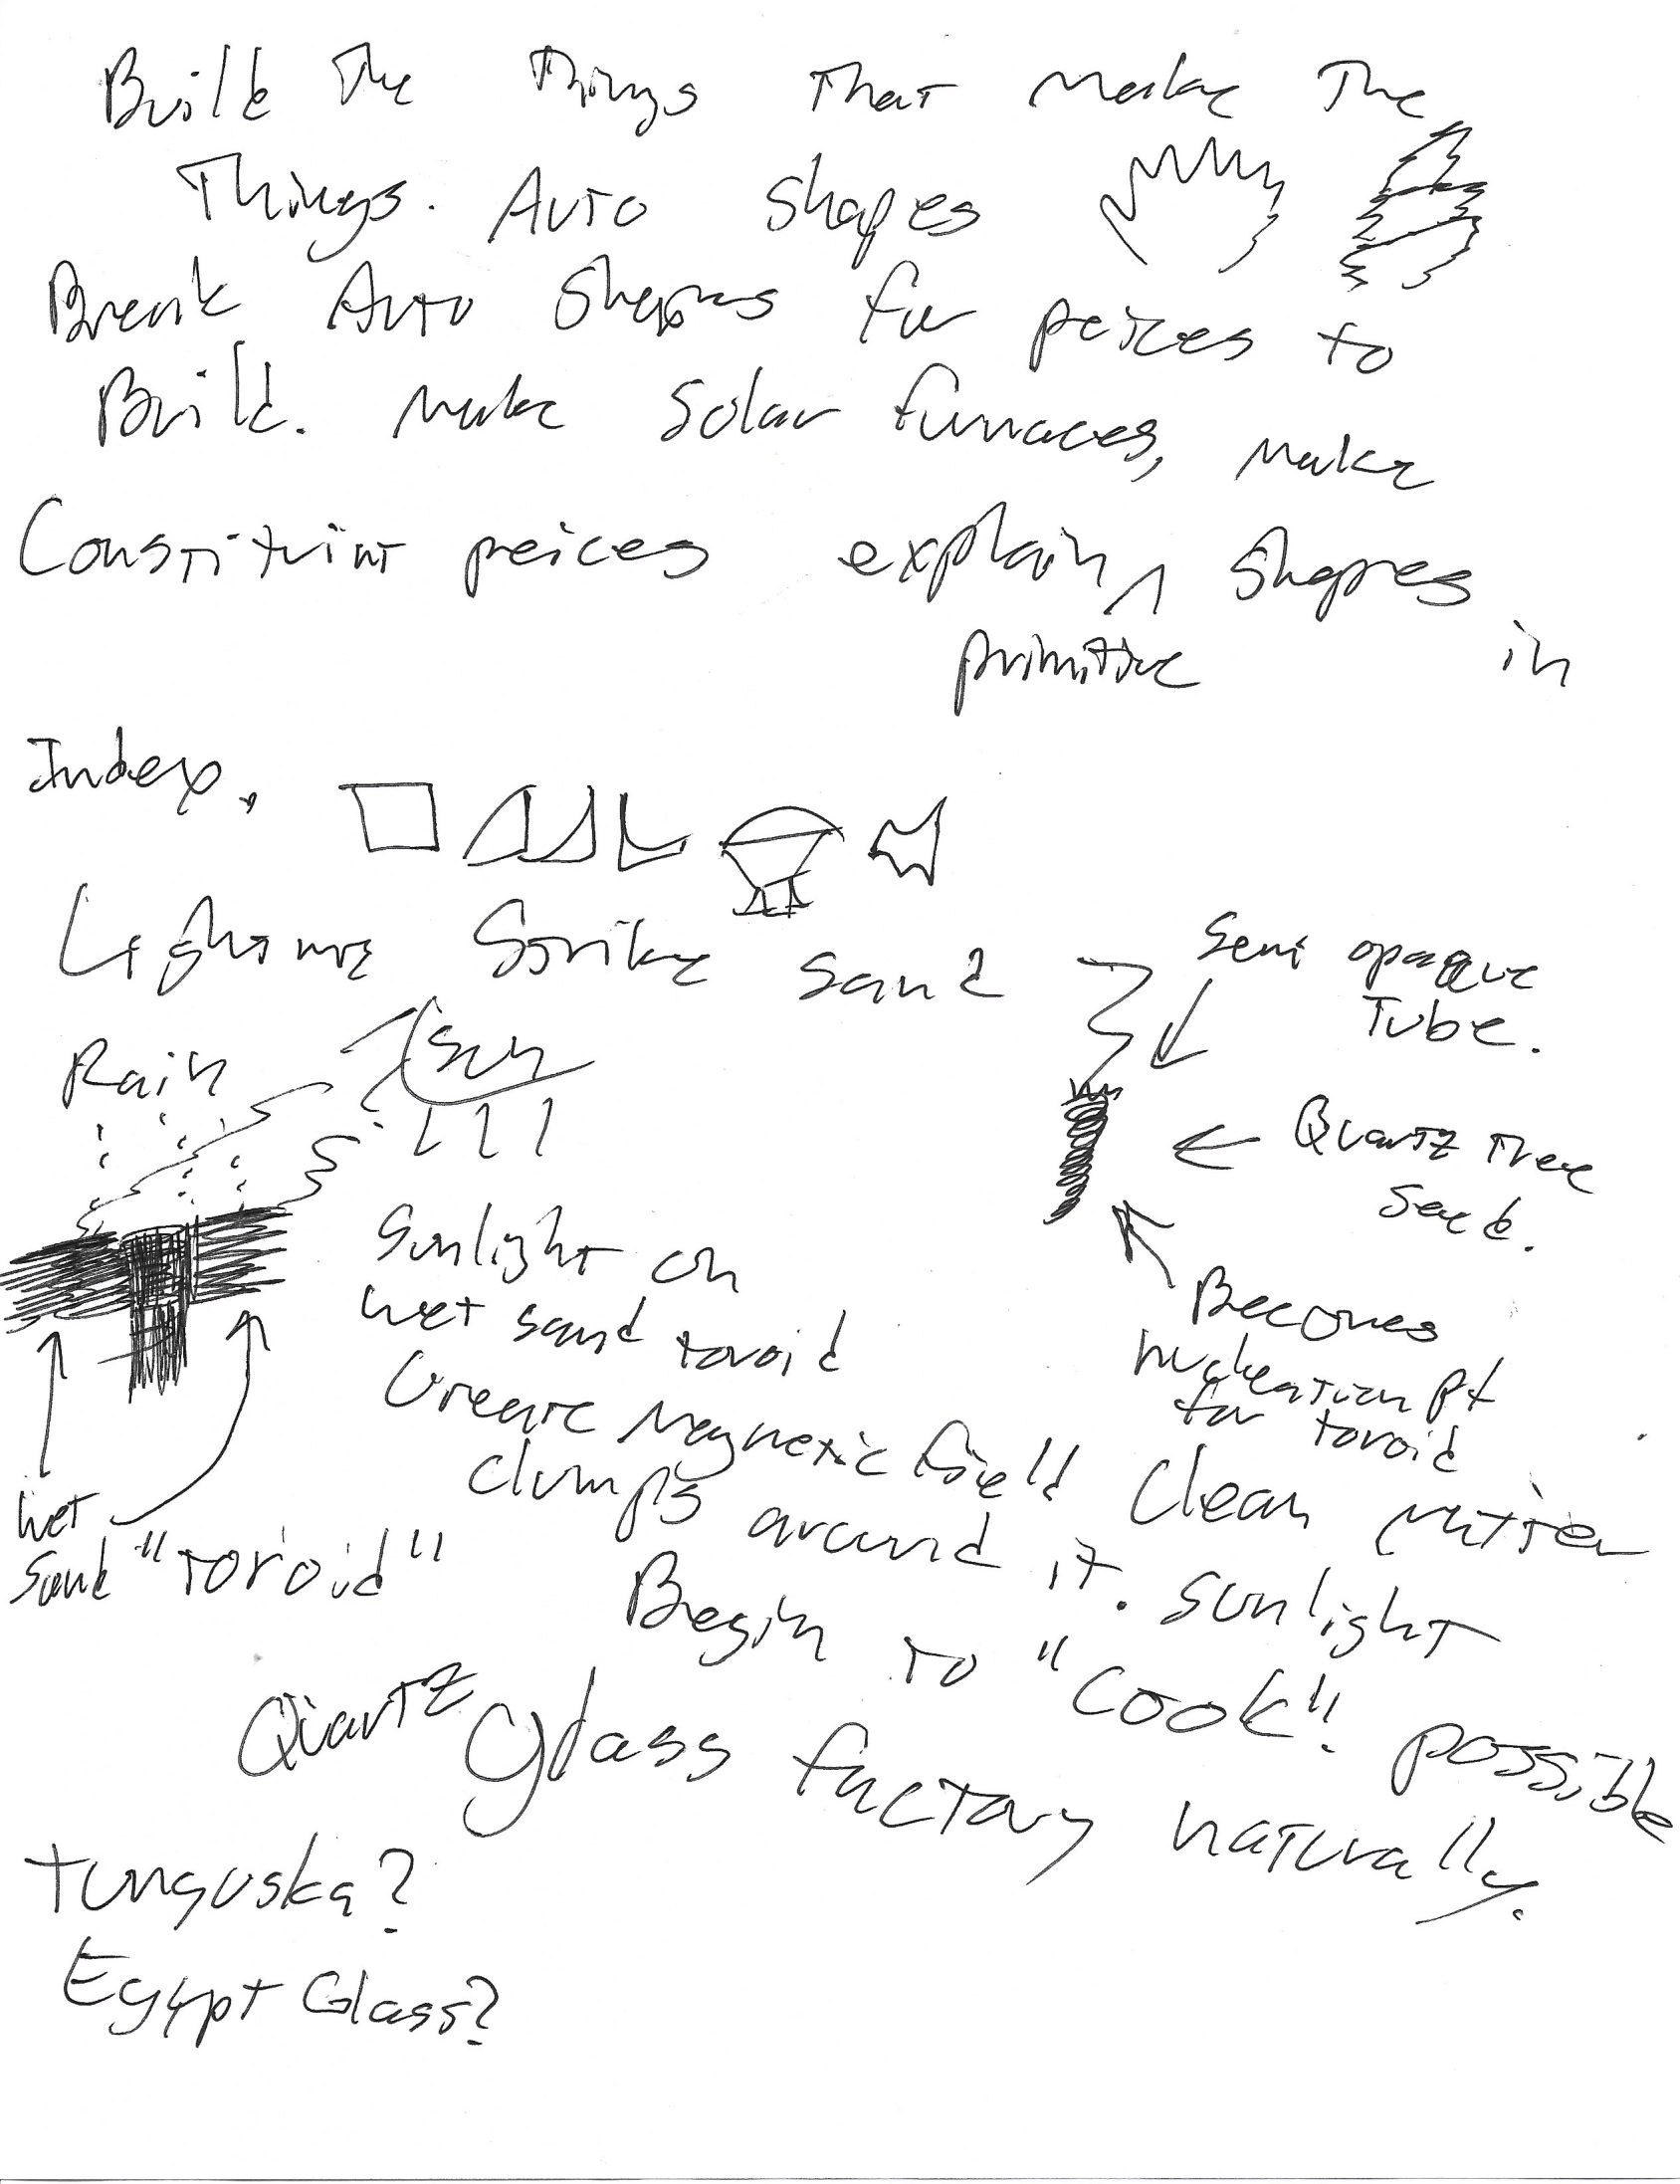 Build The Things That Make The
Things. Auto Shapes
Break Auto Shapes for peices to
Build. Make Solar furnaces, Make
Constituint peices explain ^ Shapes in
primitive
Index.
Lightning Strike sand
Semi opaque
Tube.
Rain
Sun
Quartz Tree
Seed.
Becomes
nucleation pt
for toroid
Sunlight on
wet sand toroid
Create Magnetic field! Clean matter
clumps around it. Sunlight
Begin to "cook"! possible
Quartz Glass factory naturally.
wet
sand "toroid"
Tunguska?
Egypt Glass?